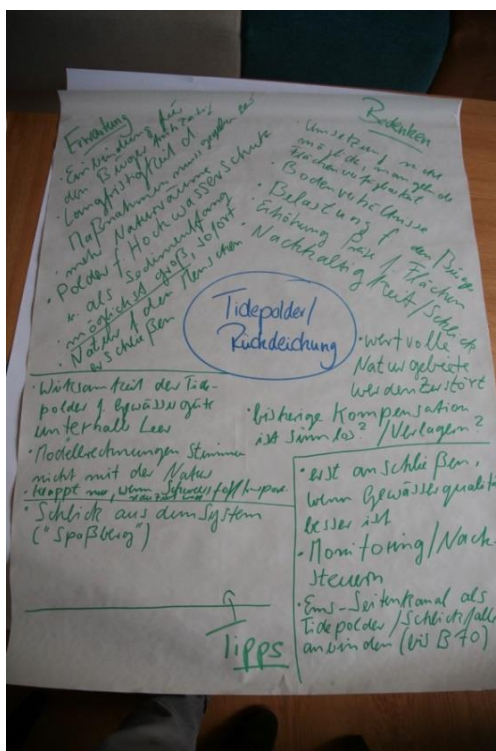 Erwartung
Einbindung für
den Bürger
Langfristigkeit d
Maßnahmen muss gegeben sein
· mehr Naturräume
· Polder f Hochwasserschutz
u. als Sedimentfang
möglichst groß, sofort
· Natur f den Menschen
erschließen
Bedenken
· Umsetzung nicht
möglich, mangelnde
Flächenverfügbarkeit
· Bodenverhältnisse
· Belastung f den Bürger
· Erhöhung Preise f Flächen
· Nachhaltigkeit/Schlick
Tidepolder/
Rückdeichung
· wertvolle
Naturgebiete
werden zerstört
· bisherige Kompensation
ist sinnlos? /Verlagern?
· Wirksamkeit der Tide-
polder f Gewässergüte
unterhalb Leer
· Modellrechnungen stimmen
nicht mit der Natur
· klappt nur, wenn
· Schlick aus dem System
("Spaßberg")
· erst anschließen,
wenn Gewässerqualität
besser ist
· Monitoring/Nach-
steuern
· Ems-Seitenkanal als
Tidepolder/Schlickfalle
anbinden (bis B70)
Tipps